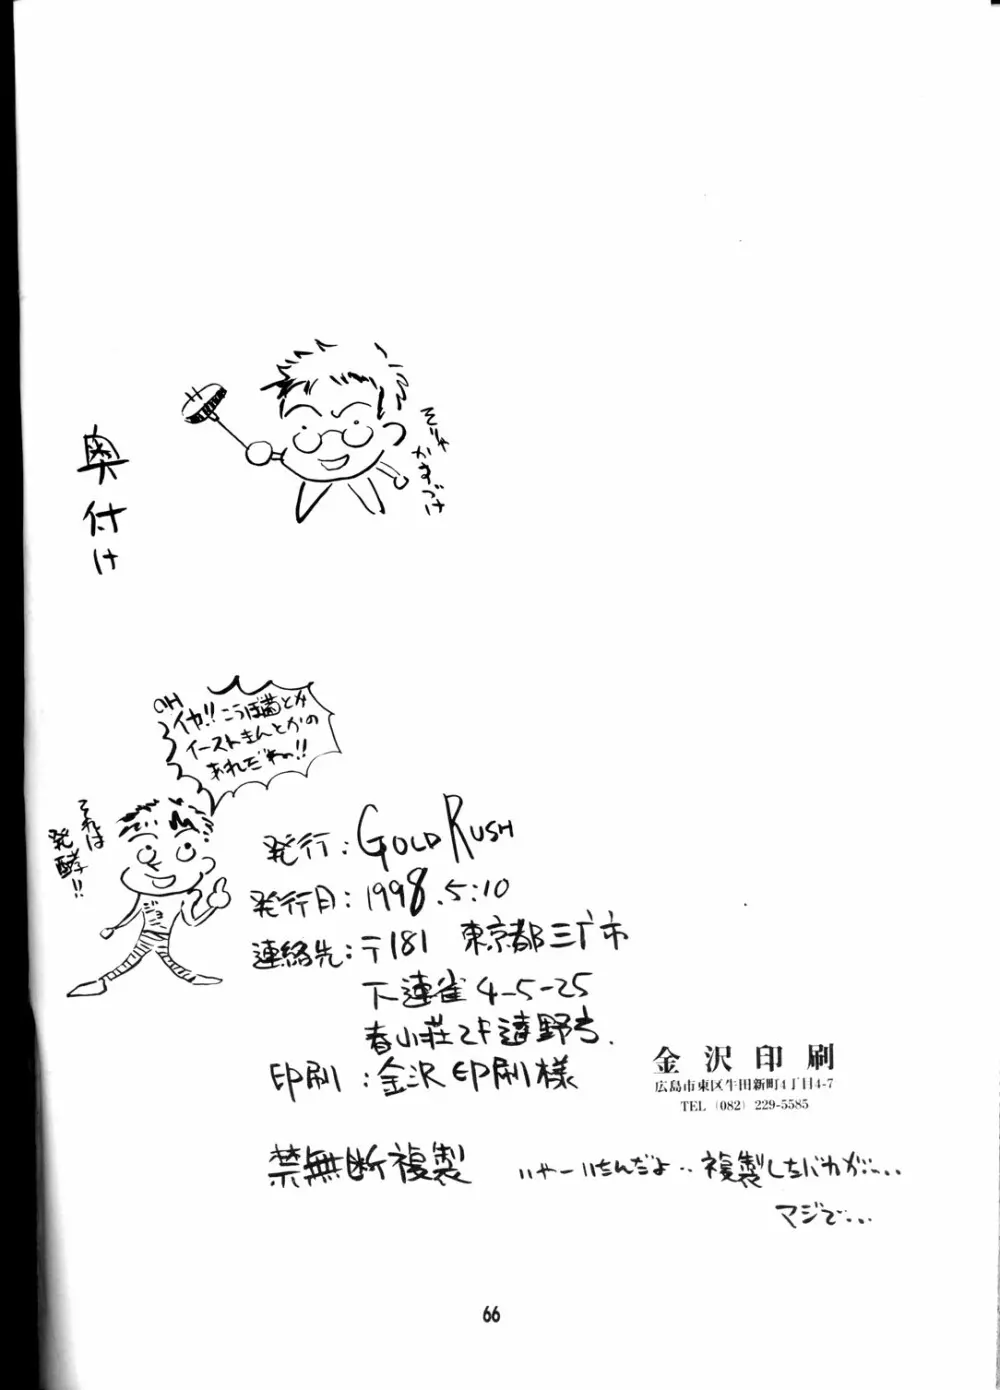 奥付け
そりゃ
かすづけ
OH
イヤ!!こうぼ菌とか
イーストきんとかの
あれだねっ!!
それは
発酵!!
発行:GOLD RUSH
発行日:1998.5.10
連絡先:〒181 東京都三广市
下連雀4-5-25
春山荘2F遠野方.
印刷:金沢印刷様
金沢印刷
広島市東区牛田新町4丁目4-7
TEL (082) 229-5585
禁無断複製
いやーいたんだよ‥複製したバカが‥‥
マジで…
66